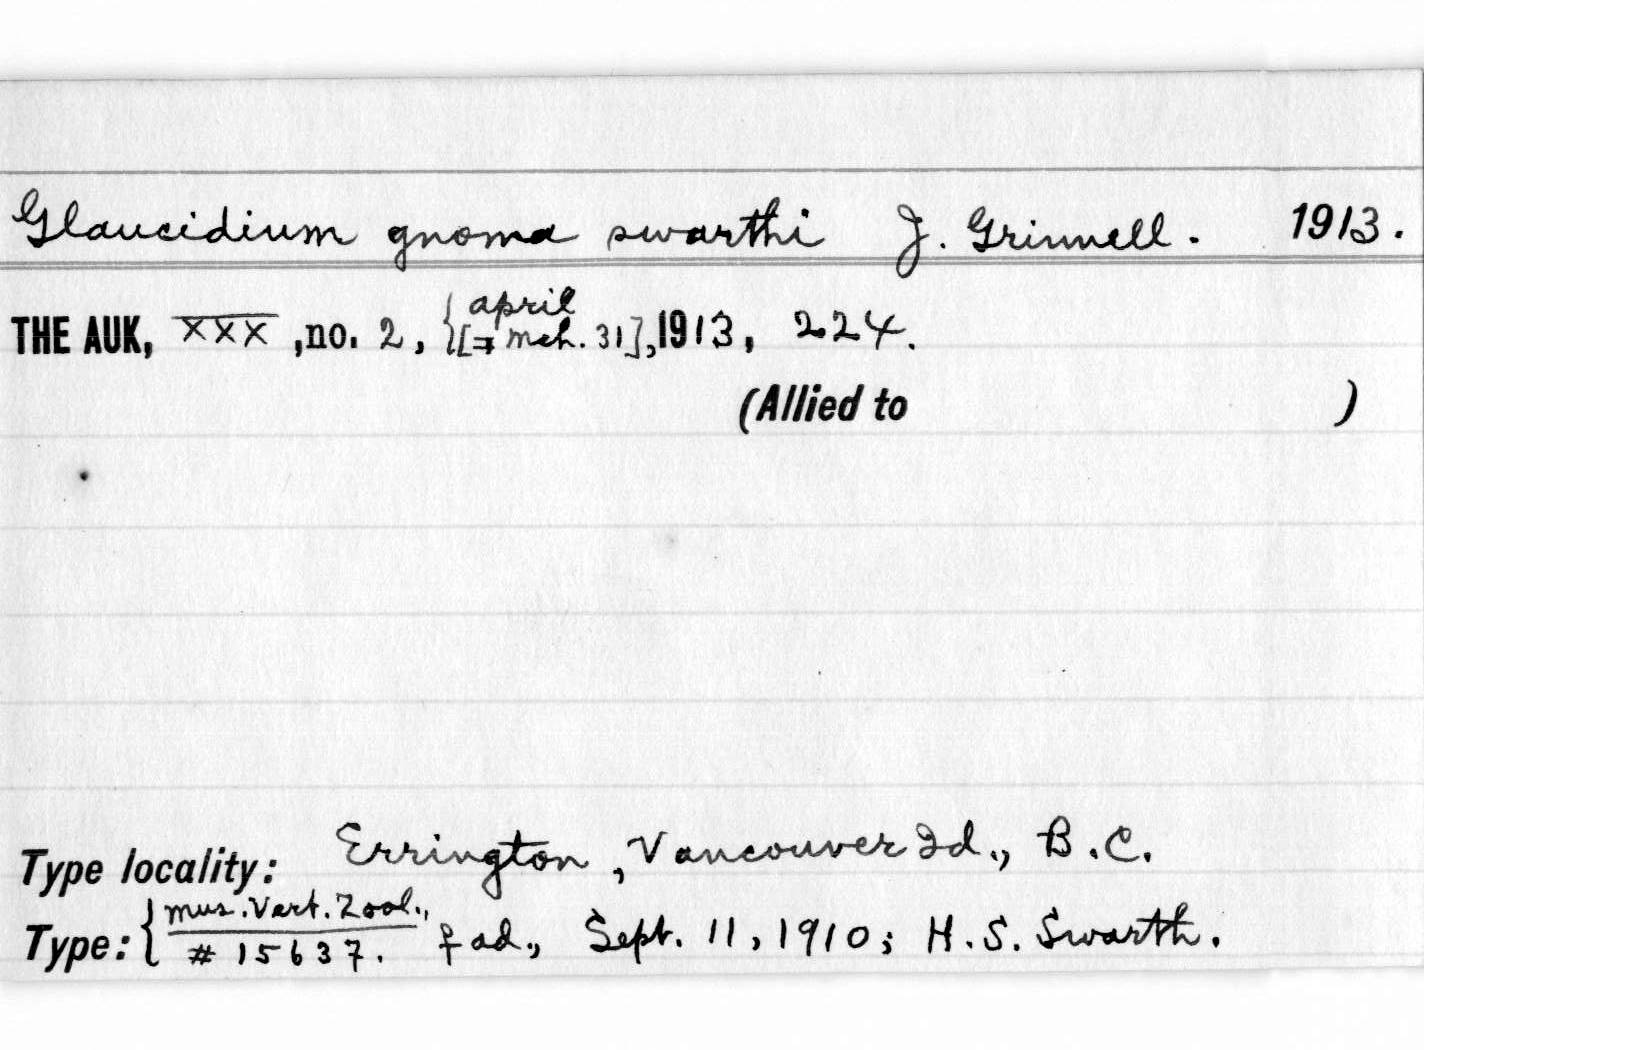 Glaucidium gnoma swarthi J. Grinnell. 1913.
THE AUK, XXX, no. 2, {april [= mch. 31], 1913, 224.
(Allied to )
Type locality: Errington, Vancouver Id., B.C.
Type: {Mus. Vert. Zool., # 15637. ♀ ad., Sept. 11, 1910; H.S. Swarth.